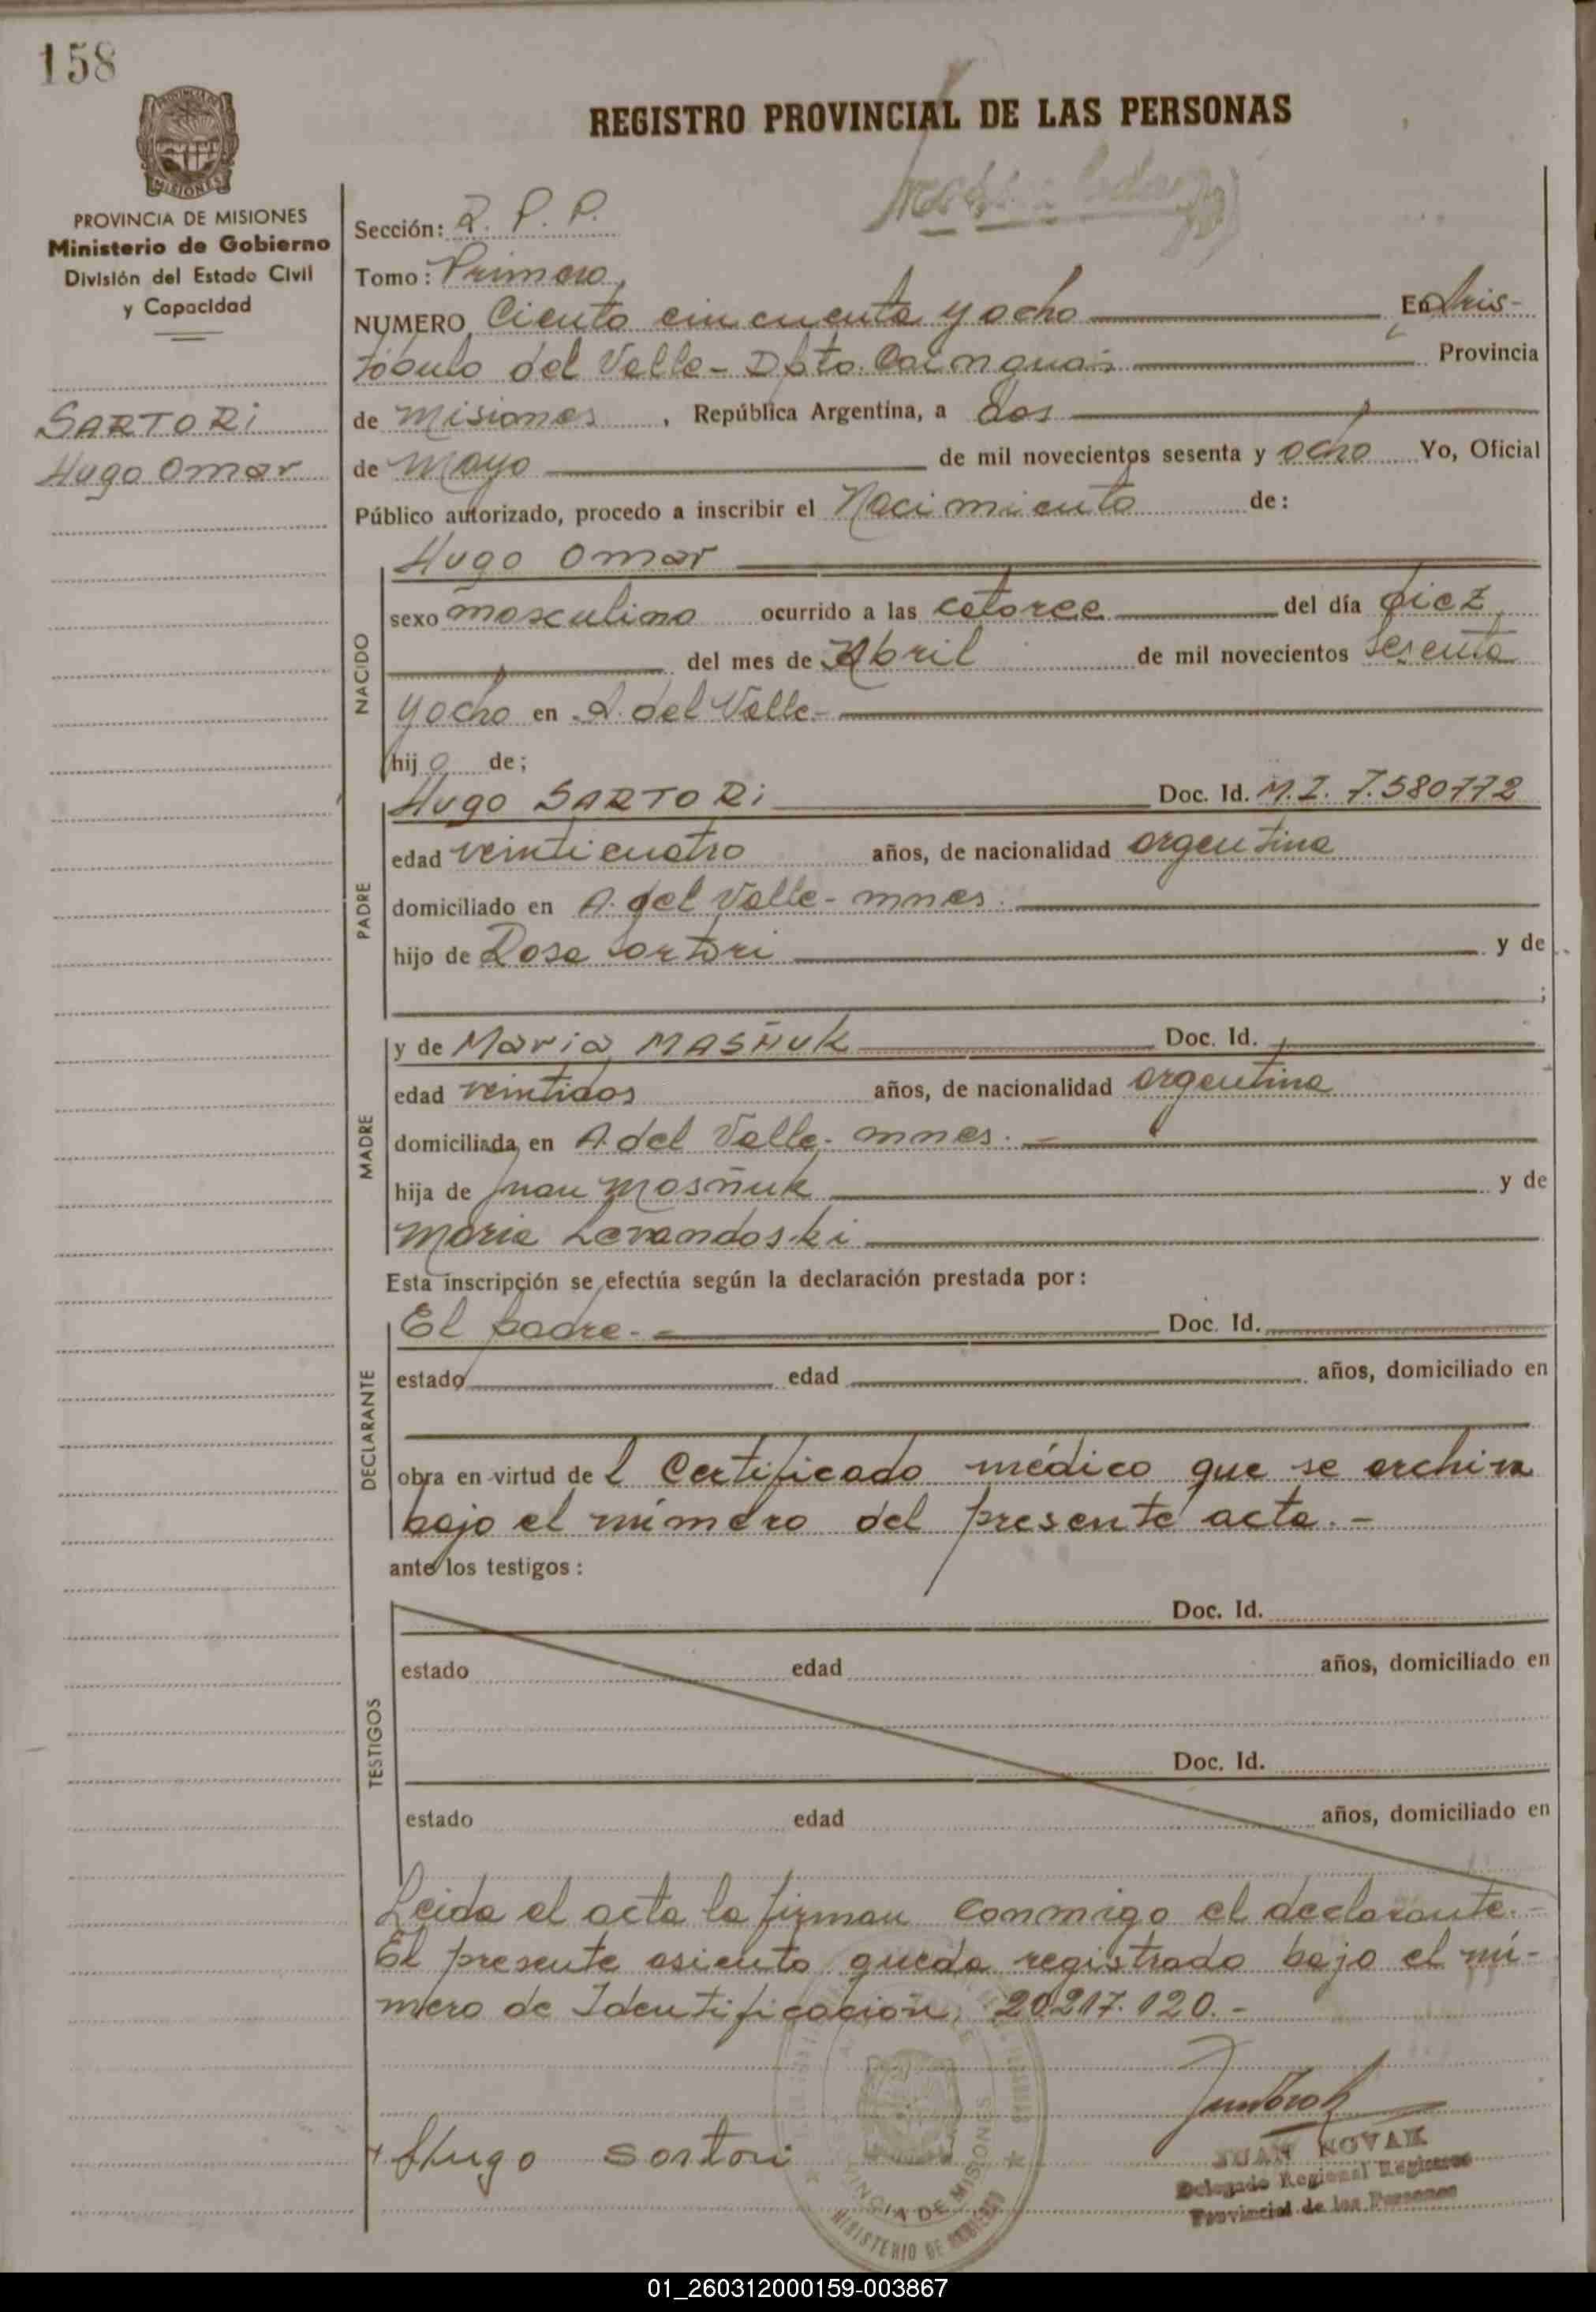 158
REGISTRO PROVINCIAL DE LAS PERSONAS
PROVINCIA DE MISIONES
Ministerio de Gobierno
División del Estado Civil
y Capacidad
SARTORi
Hugo Omar
Sección: R. P. P.
Tomo: Primero
NUMERO Ciento cincuenta y ocho En Aris-
tóbulo del Valle - Dpto. Cainguás Provincia
de Misiones, República Argentina, a dos
de Mayo de mil novecientos sesenta y ocho Yo, Oficial
Público autorizado, procedo a inscribir el Nacimiento de:
NACIDO
Hugo Omar
sexo masculino ocurrido a las catorce del día diez
del mes de Abril de mil novecientos sesenta
y ocho en A. del Valle.-
hijo de;
PADRE
Hugo SARTORi Doc. Id. M.I. 7.580772
edad veinticuatro años, de nacionalidad argentina
domiciliado en A. del Valle - mnes.
hijo de Rosa Sartori y de
;
MADRE
y de Maria MASÑUK Doc. Id.
edad veintidos años, de nacionalidad argentina
domiciliada en A. del Valle - mnes. -
hija de Juan Masñuk y de
Maria Levandoski
Esta inscripción se efectúa según la declaración prestada por:
DECLARANTE
El padre.- Doc. Id.
estado edad años, domiciliado en
obra en virtud del Certificado médico que se archiva
bajo el número del presente acta. -
ante los testigos:
TESTIGOS
Doc. Id.
estado edad años, domiciliado en
Doc. Id.
estado edad años, domiciliado en
Leida el acta la firman conmigo el declarante.-
El presente asiento queda registrado bajo el nú-
mero de Identificación, 20.217.120.-
Hugo Sartori
JUAN NOVAK
Delegado Regional Registro
Provincial de las Personas
PROVINCIA DE MISIONES
MINISTERIO DE GOBIERNO
01_260312000159-003867